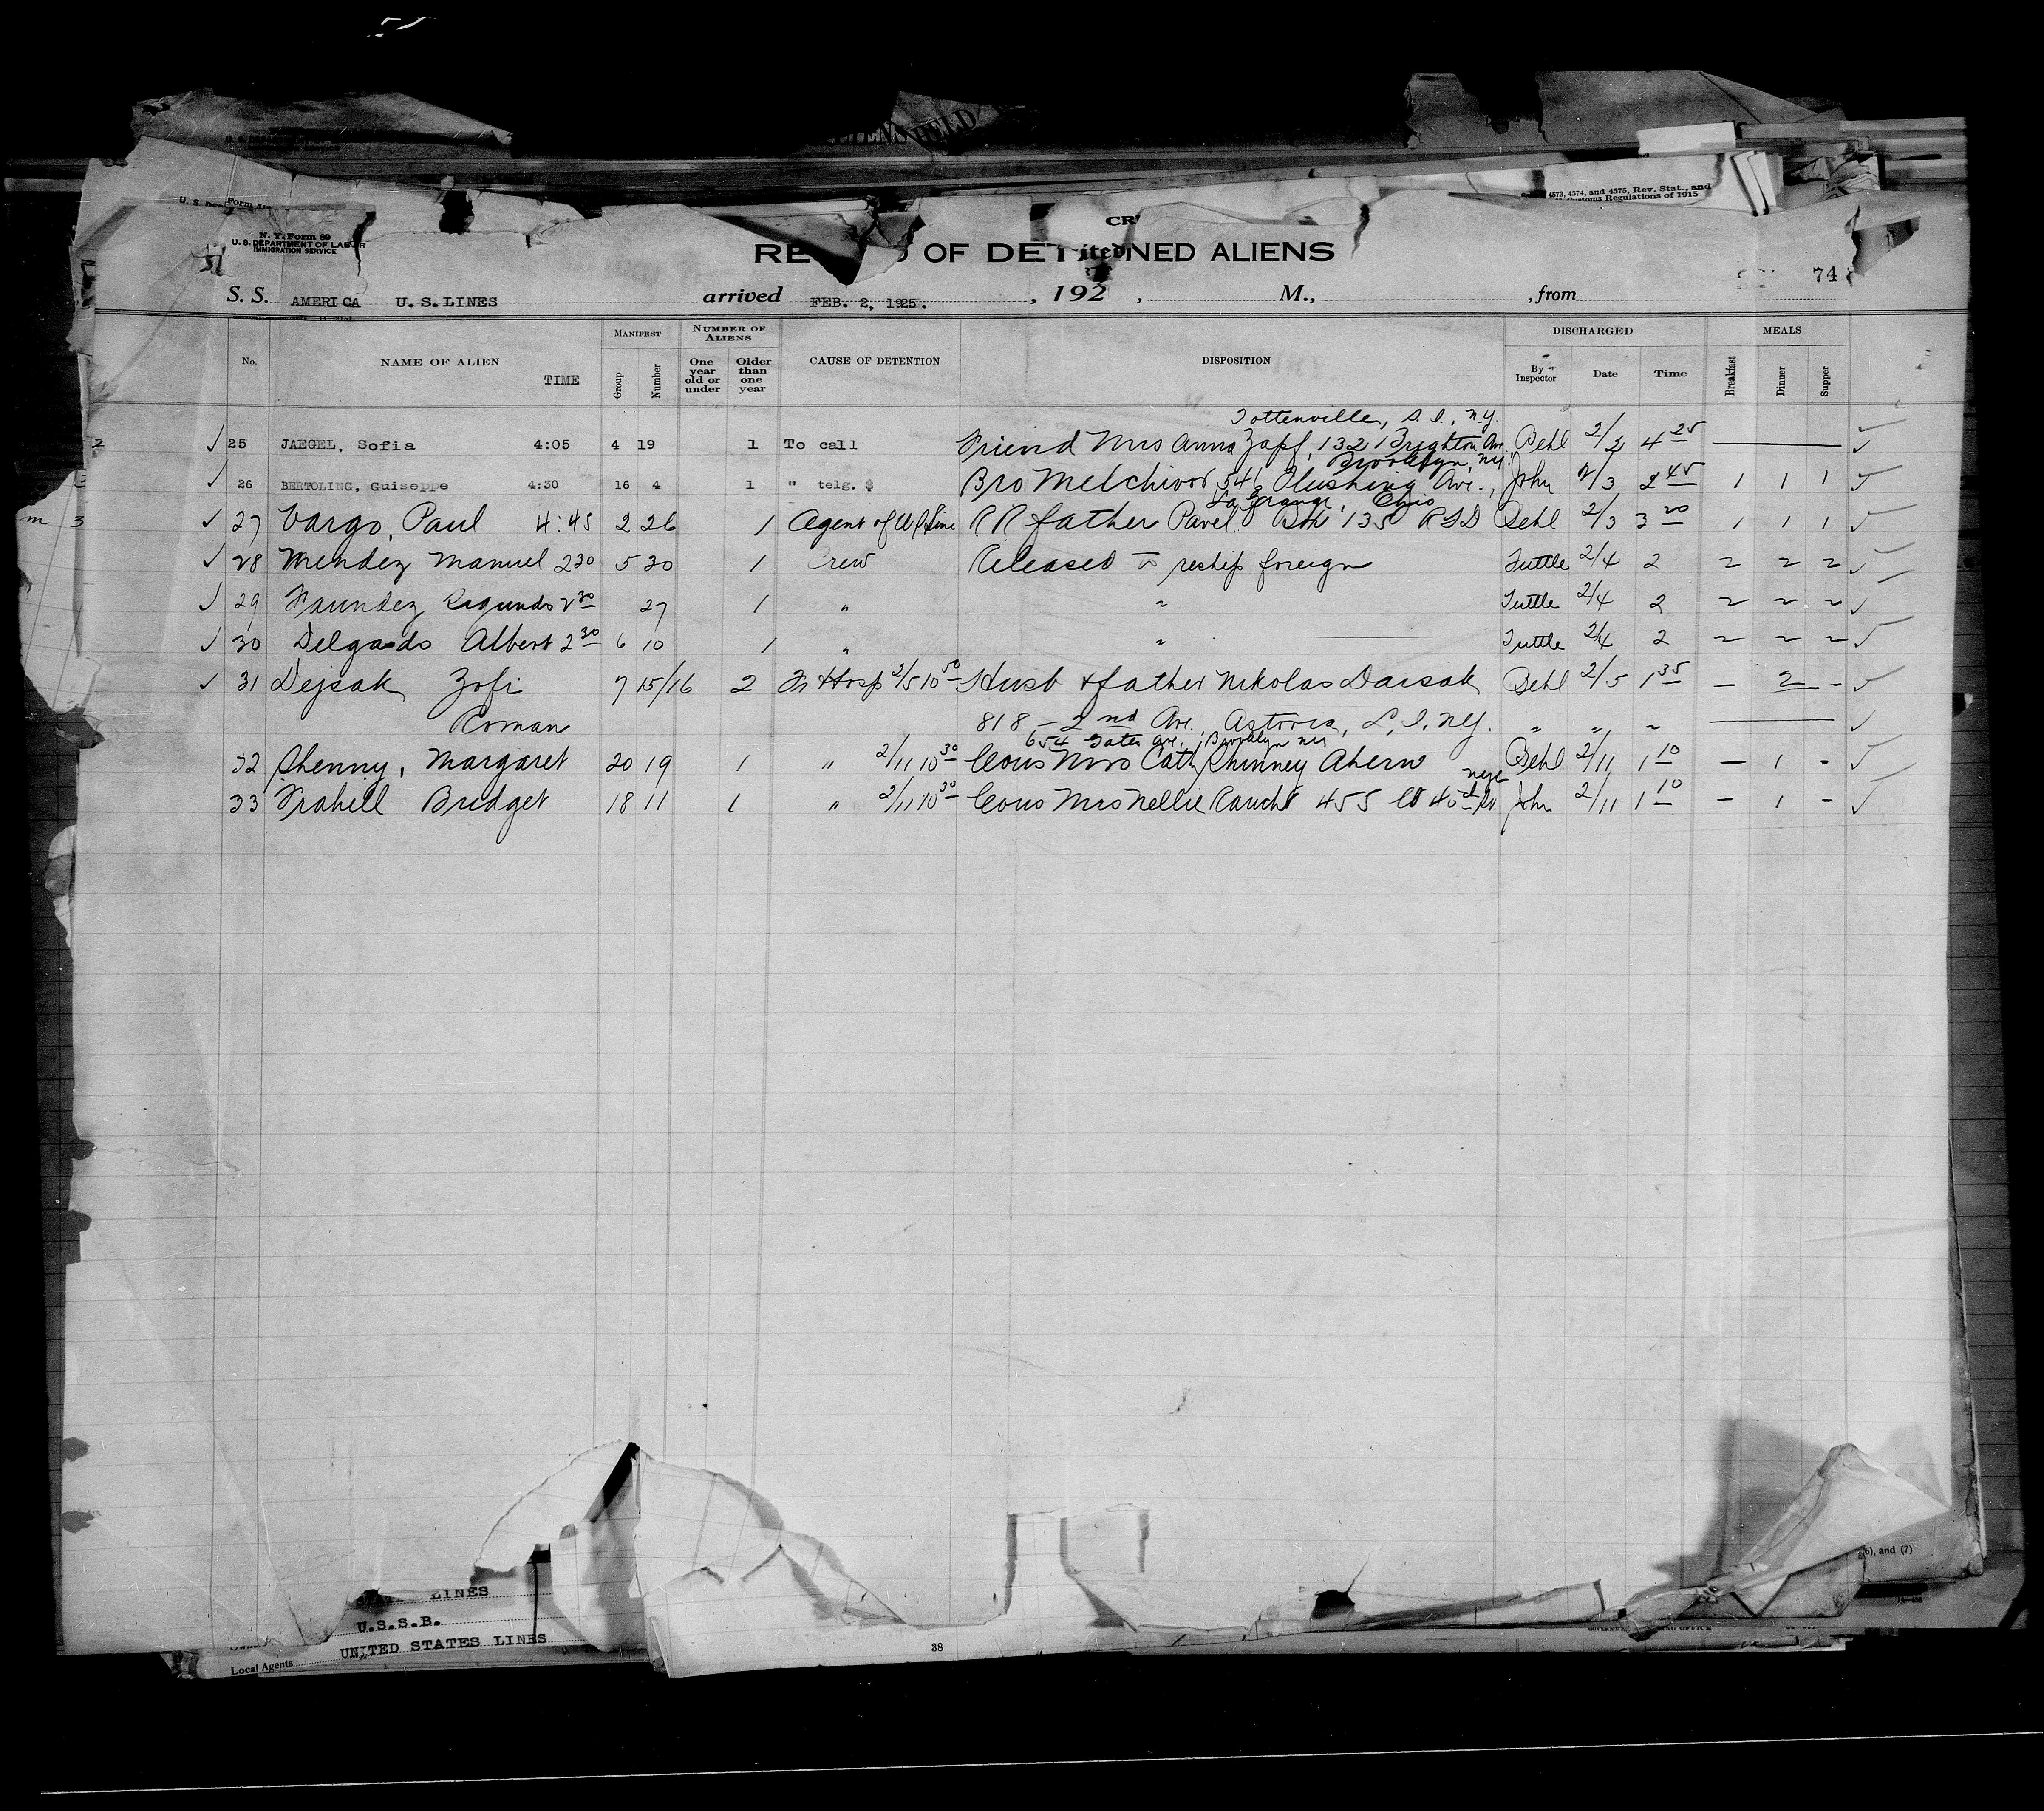 4573, 4574, and 4575, Rev. Stat., and
Customs Regulations of 1915
N. Y. Form 89
U. S. DEPARTMENT OF LABOR
IMMIGRATION SERVICE
OF DETAINED ALIENS
74
S. S. AMERICA U.S.LINES arrived FEB. 2, 1925. , 192 , M., , from
No. NAME OF ALIEN TIME MANIFEST Group Number NUMBER OF ALIENS One year old or under Older than one year CAUSE OF DETENTION DISPOSITION DISCHARGED By Inspector Date Time MEALS Breakfast Dinner Supper
Tottenville, S. I., N.Y.
25 JAEGEL, Sofia 4:05 4 19 1 To call Friend Mrs Anna Zapf, 132 Brighton Ave Behl 2/2 4 25
Brooklyn, NY.
26 BERTOLING, Guiseppe 4:30 16 4 1 " telg. $ Bro Melchiorr 546 Flushing Ave., John 2/3 2 45 1 1 1
La Grange, Ohio
27 Vargo, Paul 4:45 2 26 1 Agent of Line RR father Pavel Box 135 RFD Behl 2/3 3 20 1 1 1
28 Mendez Manuel 2 30 5 30 1 Crew Released to reship foreign Tuttle 2/4 2 2 2 2
29 Faundez 2 30 27 1 " " Tuttle 2/4 2 2 2 2
30 Delgado Albert 2 30 6 10 1 " " Tuttle 2/4 2 2 2 2
31 Dejsak Zofi 7 15/16 2 In Hosp 2/5 10 50 Husb & father Nikolas Daisak Behl 2/5 1 35 — 2 -
Roman 818 - 2nd Ave., Astoria, L. I. NY. " " "
654 Gates Ave., Brooklyn NY
32 Shenny, Margaret 20 19 1 " 2/11 10 30 Cous Mrs Cath Ahern Behl 2/11 1 10 — 1 -
NYC
33 Frahill Bridget 18 11 1 " 2/11 10 30 Cous Mrs Nellie Rauch 455 W 45 St. John 2/11 1 10 — 1 -
LINES
U.S.S.B.
Local Agents UNITED STATES LINES
38
6), and (7)